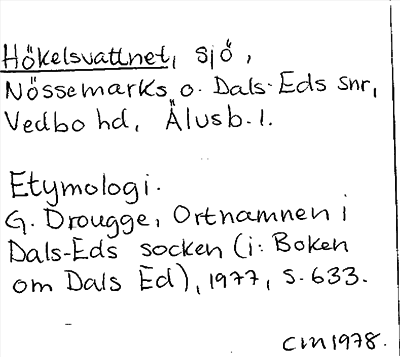 Hökelsvattnet, sjö,
Nössemarks o. Dals-Eds snr,
Vedbo hd, Älvsb. l.
Etymologi.
G. Drougge, Ortnamnen i
Dals-Eds socken (i: Boken
om Dals Ed), 1977, s. 633.
CM 1978.